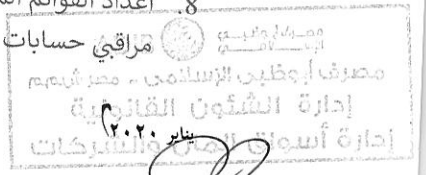 8. اعداد القوائم
مراقبي حسابات
مصرف أبوظبي الإسلامي - مصر
إدارة الشئون القانونية
يناير ٢٠٢٠
إدارة أسواق المال والشركات